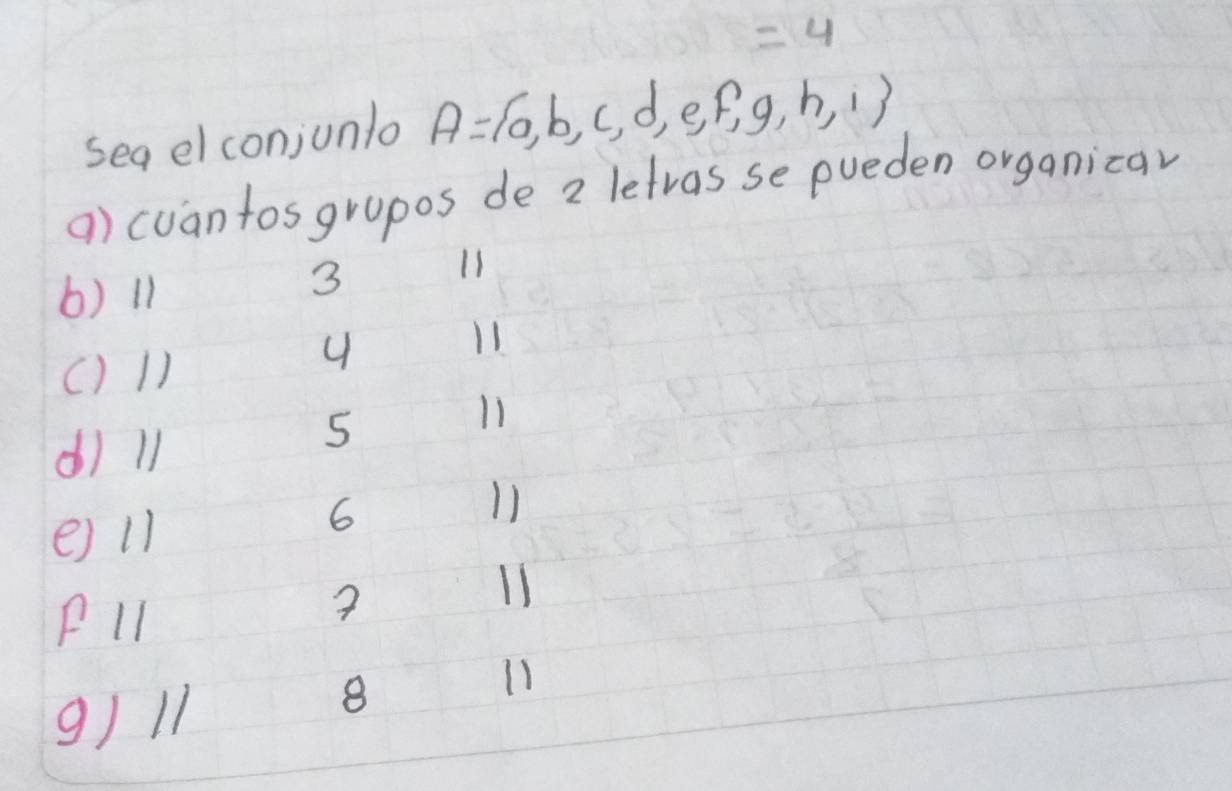 = 4
Sea el conjunto A={a, b, c, d, e, f, g, h, i}
a) cuántos grupos de 2 letras se pueden organizar
b) 11 3 11
c) 11 4 11
d) 11 5 11
e) 11 6 11
f 11 7 11
g) 11 8 11